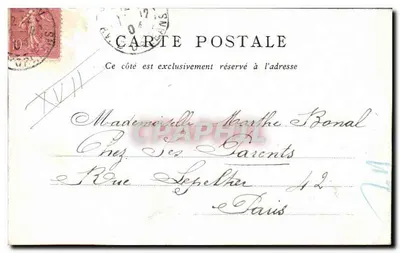 CARTE POSTALE
Ce côté est exclusivement réservé à l'adresse
XVII
Mademoiselle Marthe Bonal
Chez Ses Parents
Rue Lepeltier 42
Paris